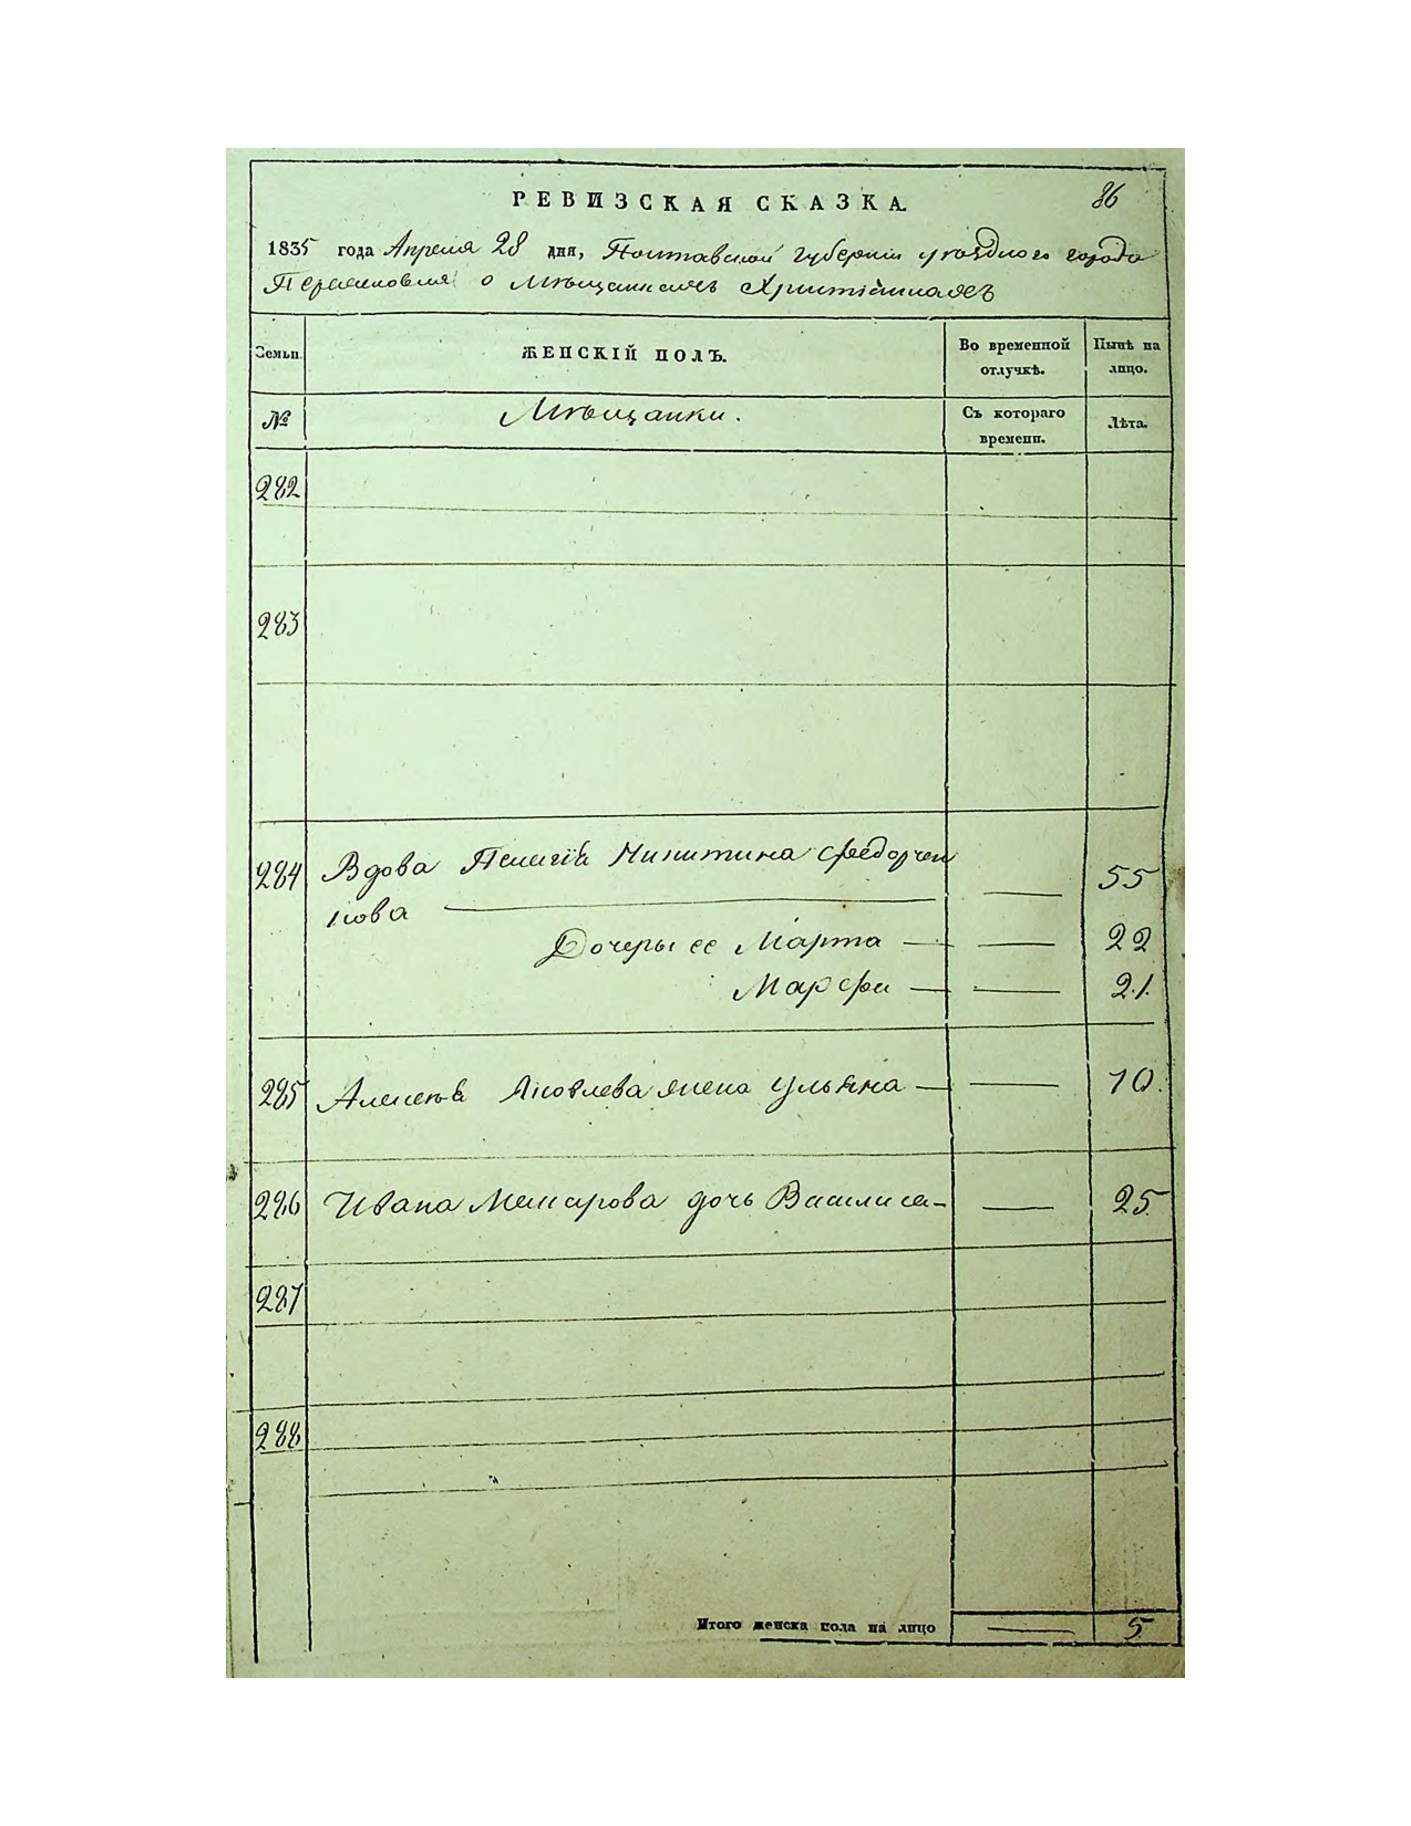 РЕВИЗСКАЯ СКАЗКА.
86
1835 года Апреля 28 дня, Полтавской Губернии уѣзднаго города
о Мѣщанахъ Христіанахъ
Семьи.
ЖЕНСКІЙ ПОЛЪ.
Во временной отлучкѣ.
Нынѣ на лицо.
№
Мѣщанки.
Съ котораго времени.
Лѣта.
282
283
284 Вдова Пелагія Никитина Федорчен
кова — — 55
Дочеры ее Марта — — 22
Марфа — — 21.
285 Алексѣя Яковлева жена Ульяна — — 70.
286 Ивана дочь Василиса — — 25
287
288
Итого женска пола на лицо — 5